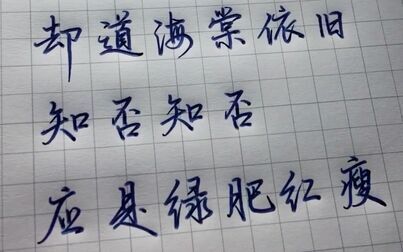 却道海棠依旧
知否知否
应是绿肥红瘦